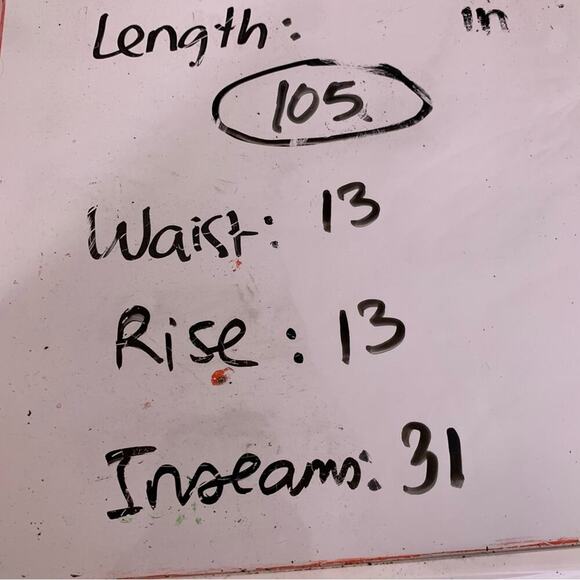 Length: in
105
Waist: 13
Rise: 13
Inseams: 31